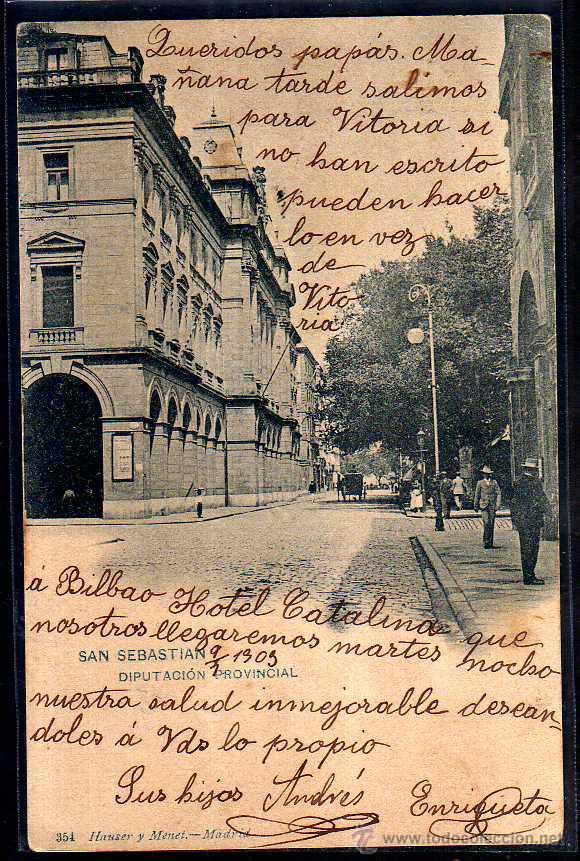 Queridos papás. Ma-
ñana tarde salimos
para Vitoria si
no han escrito
pueden hacer
lo en vez
de
Vito
ria
á Bilbao Hotel Catalina que
nosotros llegaremos martes noche
SAN SEBASTIAN 9/7 1903
DIPUTACIÓN PROVINCIAL
nuestra salud inmejorable desean-
doles á Vds lo propio
Sus hijos Andrés Enriqueta
354 Hauser y Menet.—Madrid
www.todocoleccion.net